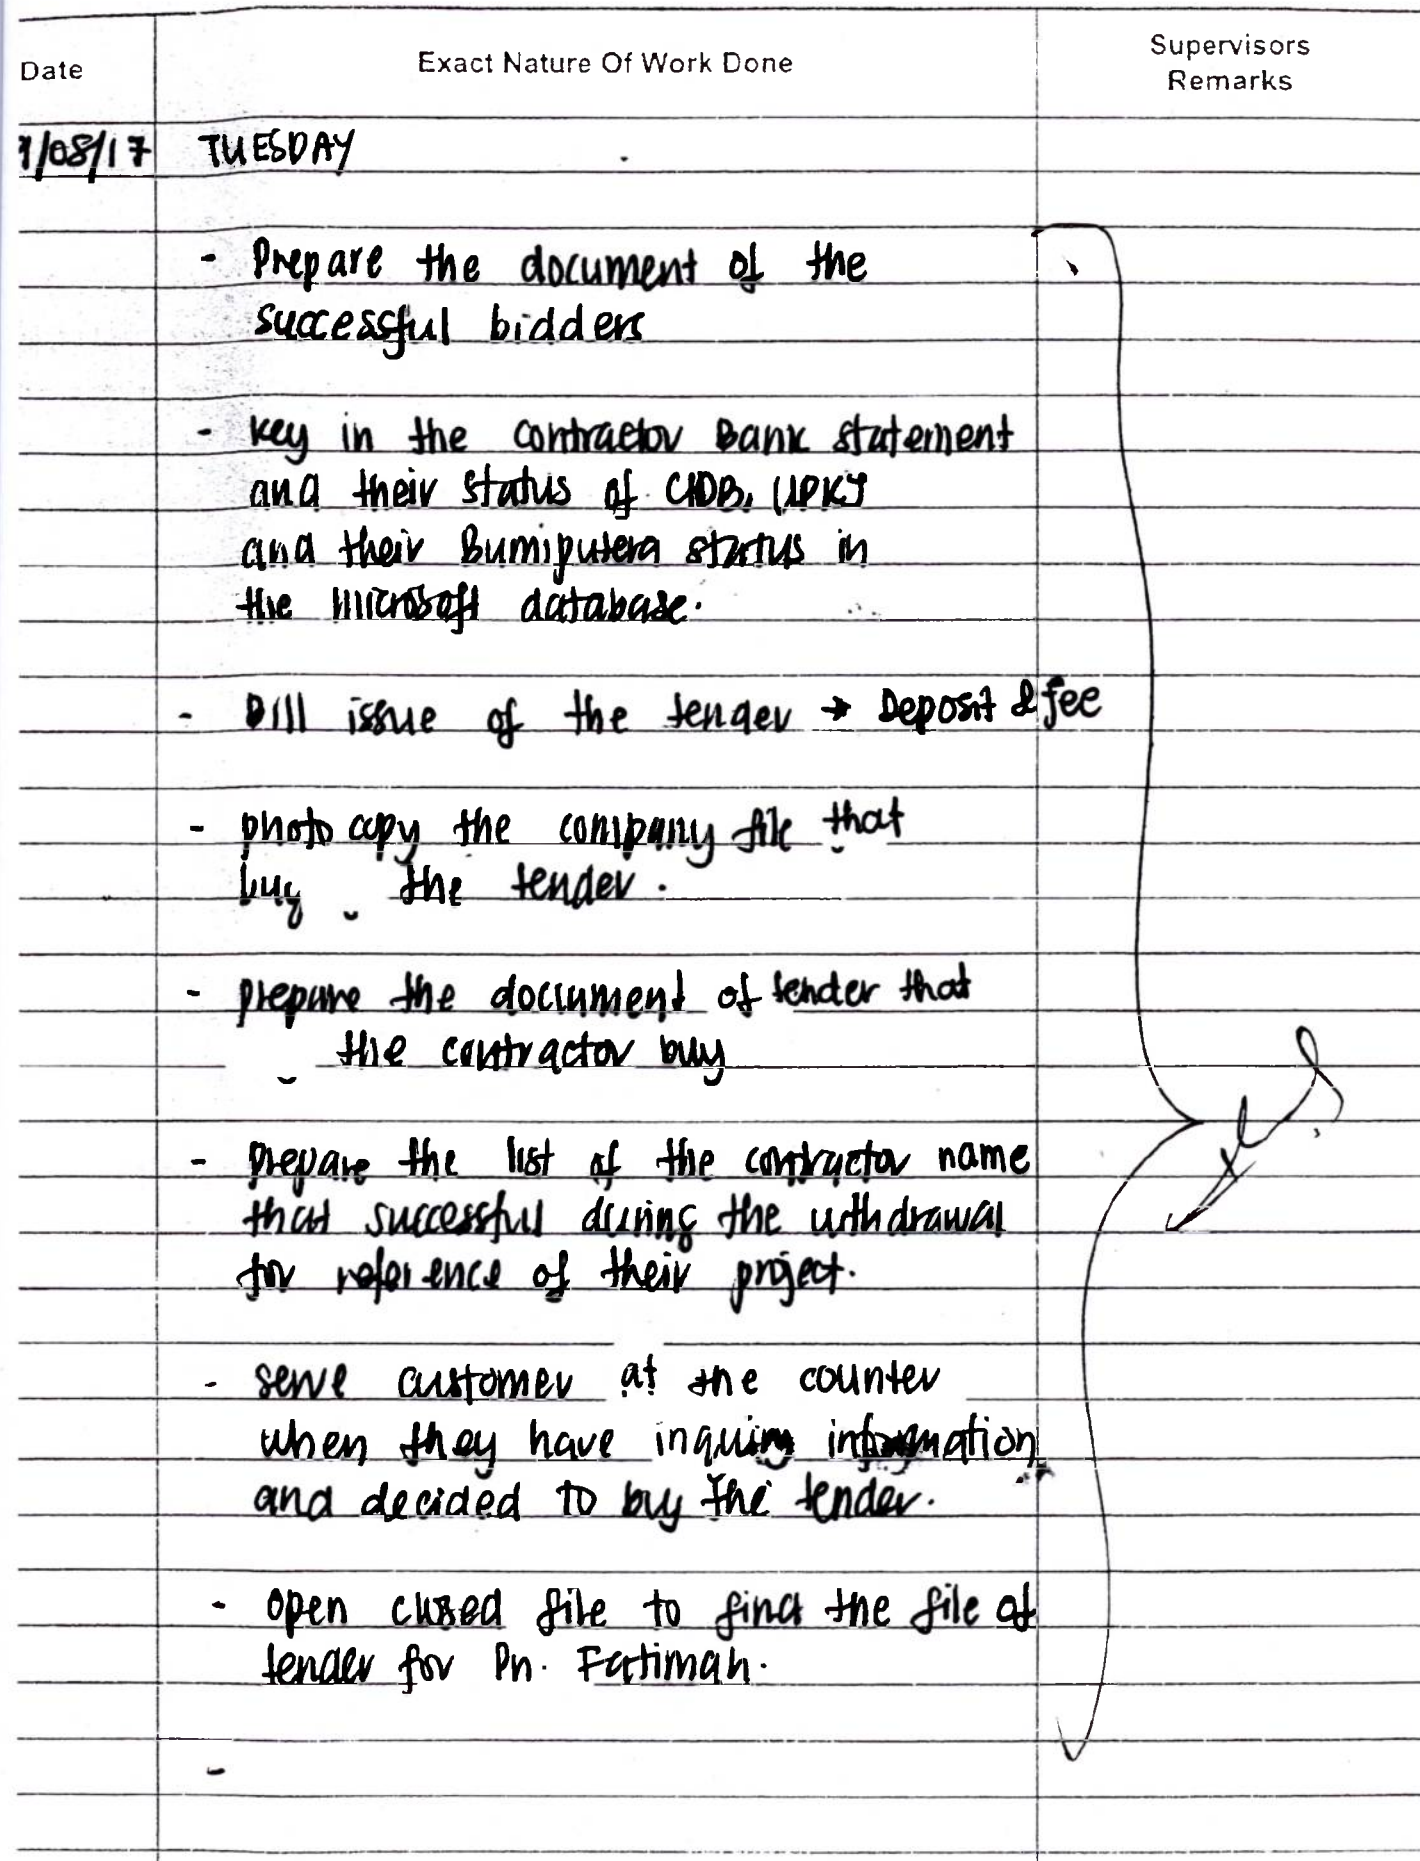 Date
Exact Nature Of Work Done
Supervisors
Remarks
1/08/17 TUESDAY
- Prepare the document of the
successful bidders
- key in the contractor Bank statement
and their status of CIDB, UPKJ
and their Bumiputera status in
the microsoft database.
- Bill issue of the tender → Deposit & fee
- photo copy the company file that
buy the tender.
- prepare the document of tender that
the contractor buy
- prepare the list of the contractor name
that successful during the withdrawal
for reference of their project.
- serve customer at the counter
when they have inquiry information
and decided to buy the tender.
- open closed file to find the file of
tender for Pn. Fatimah.
-